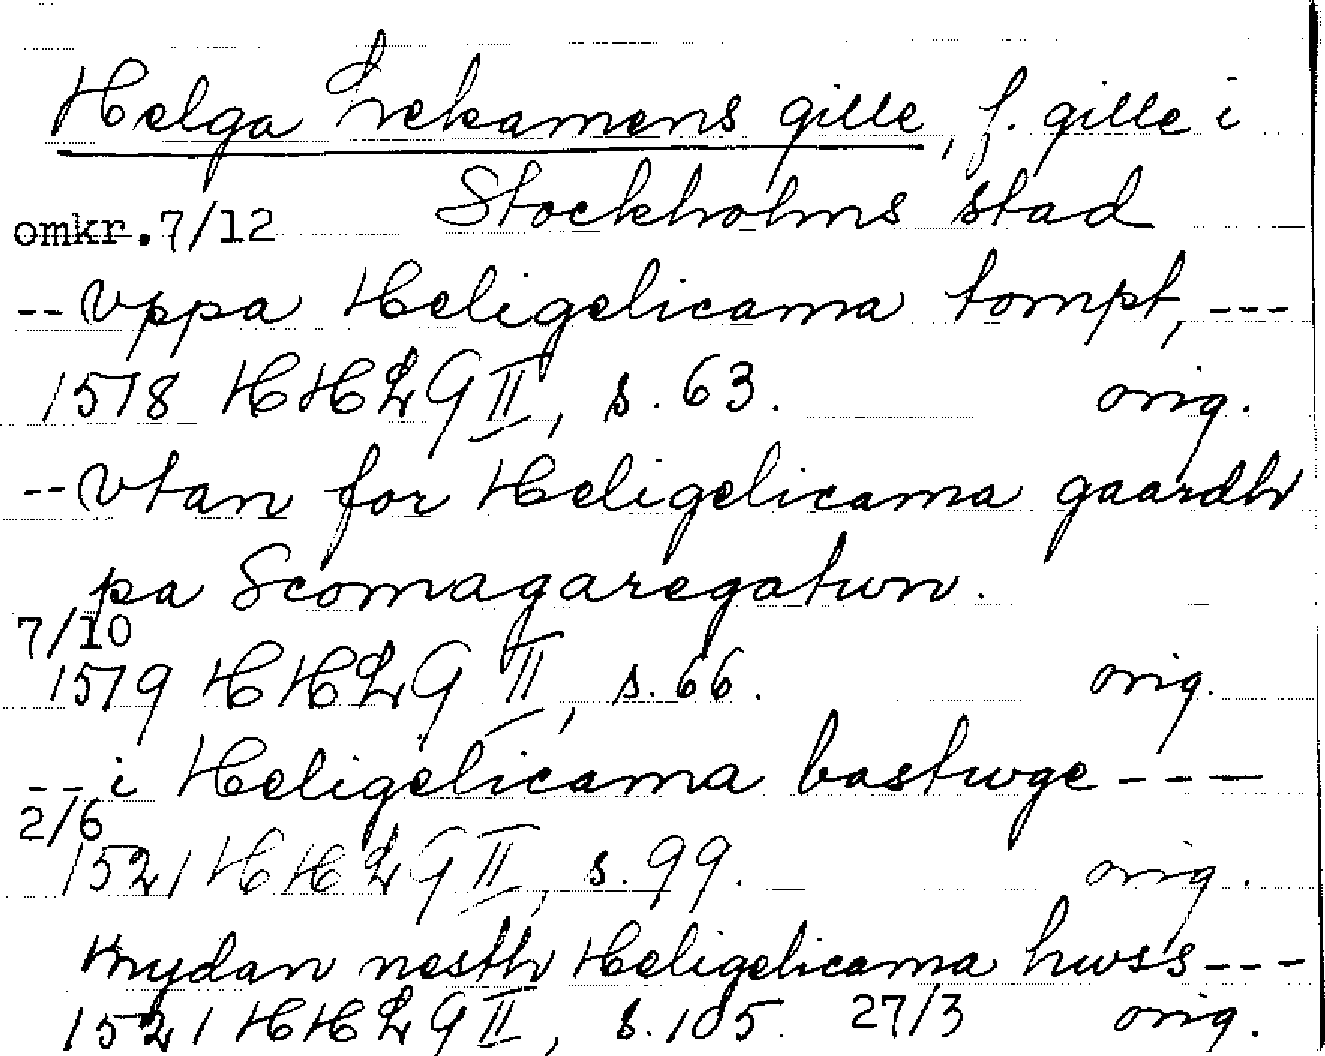 Helga Lekamens gille, f. gille i
Stockholms stad
omkr. 7/12
-- Vppa Heligelicama tompt, ---
1518 HHLG II, s. 63. orig.
-- Vtan for Heligelicama gaardh
pa Scomagaregatwn.
7/10
1519 HHLG II, s. 66. orig.
-- i Heligelicama bastwge ---
2/6
1521 HHLG II, s. 99. orig.
nydan nesth Heligelicama hwss ---
1521 HHLG II, s. 105. 27/3 orig.